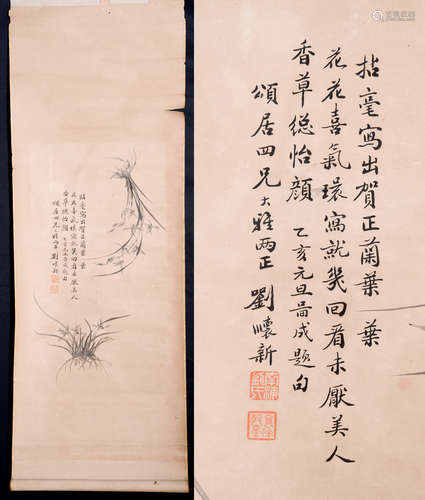 拈毫寫出賀正蘭葉葉
花花喜氣環寫就幾回看未厭美人
香草總怡顏乙亥元旦啚成題句
頌居四兄大雅兩正劉懷新